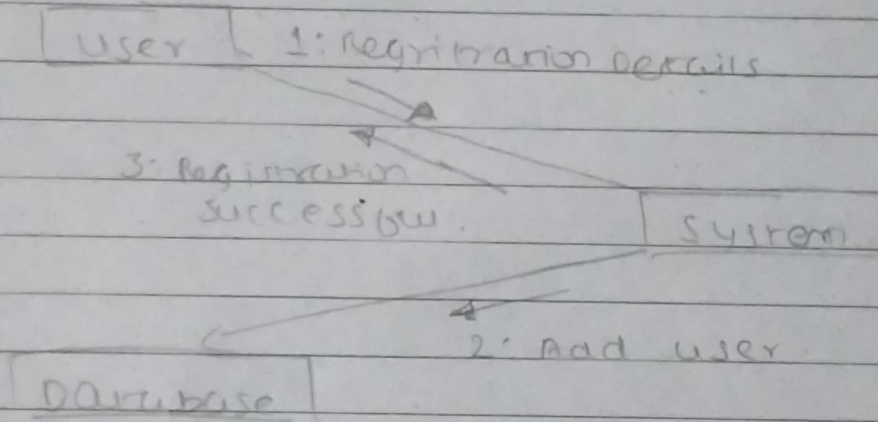 User
1: Registration Details
3: Registration
successful.
System
2: Add user
Database